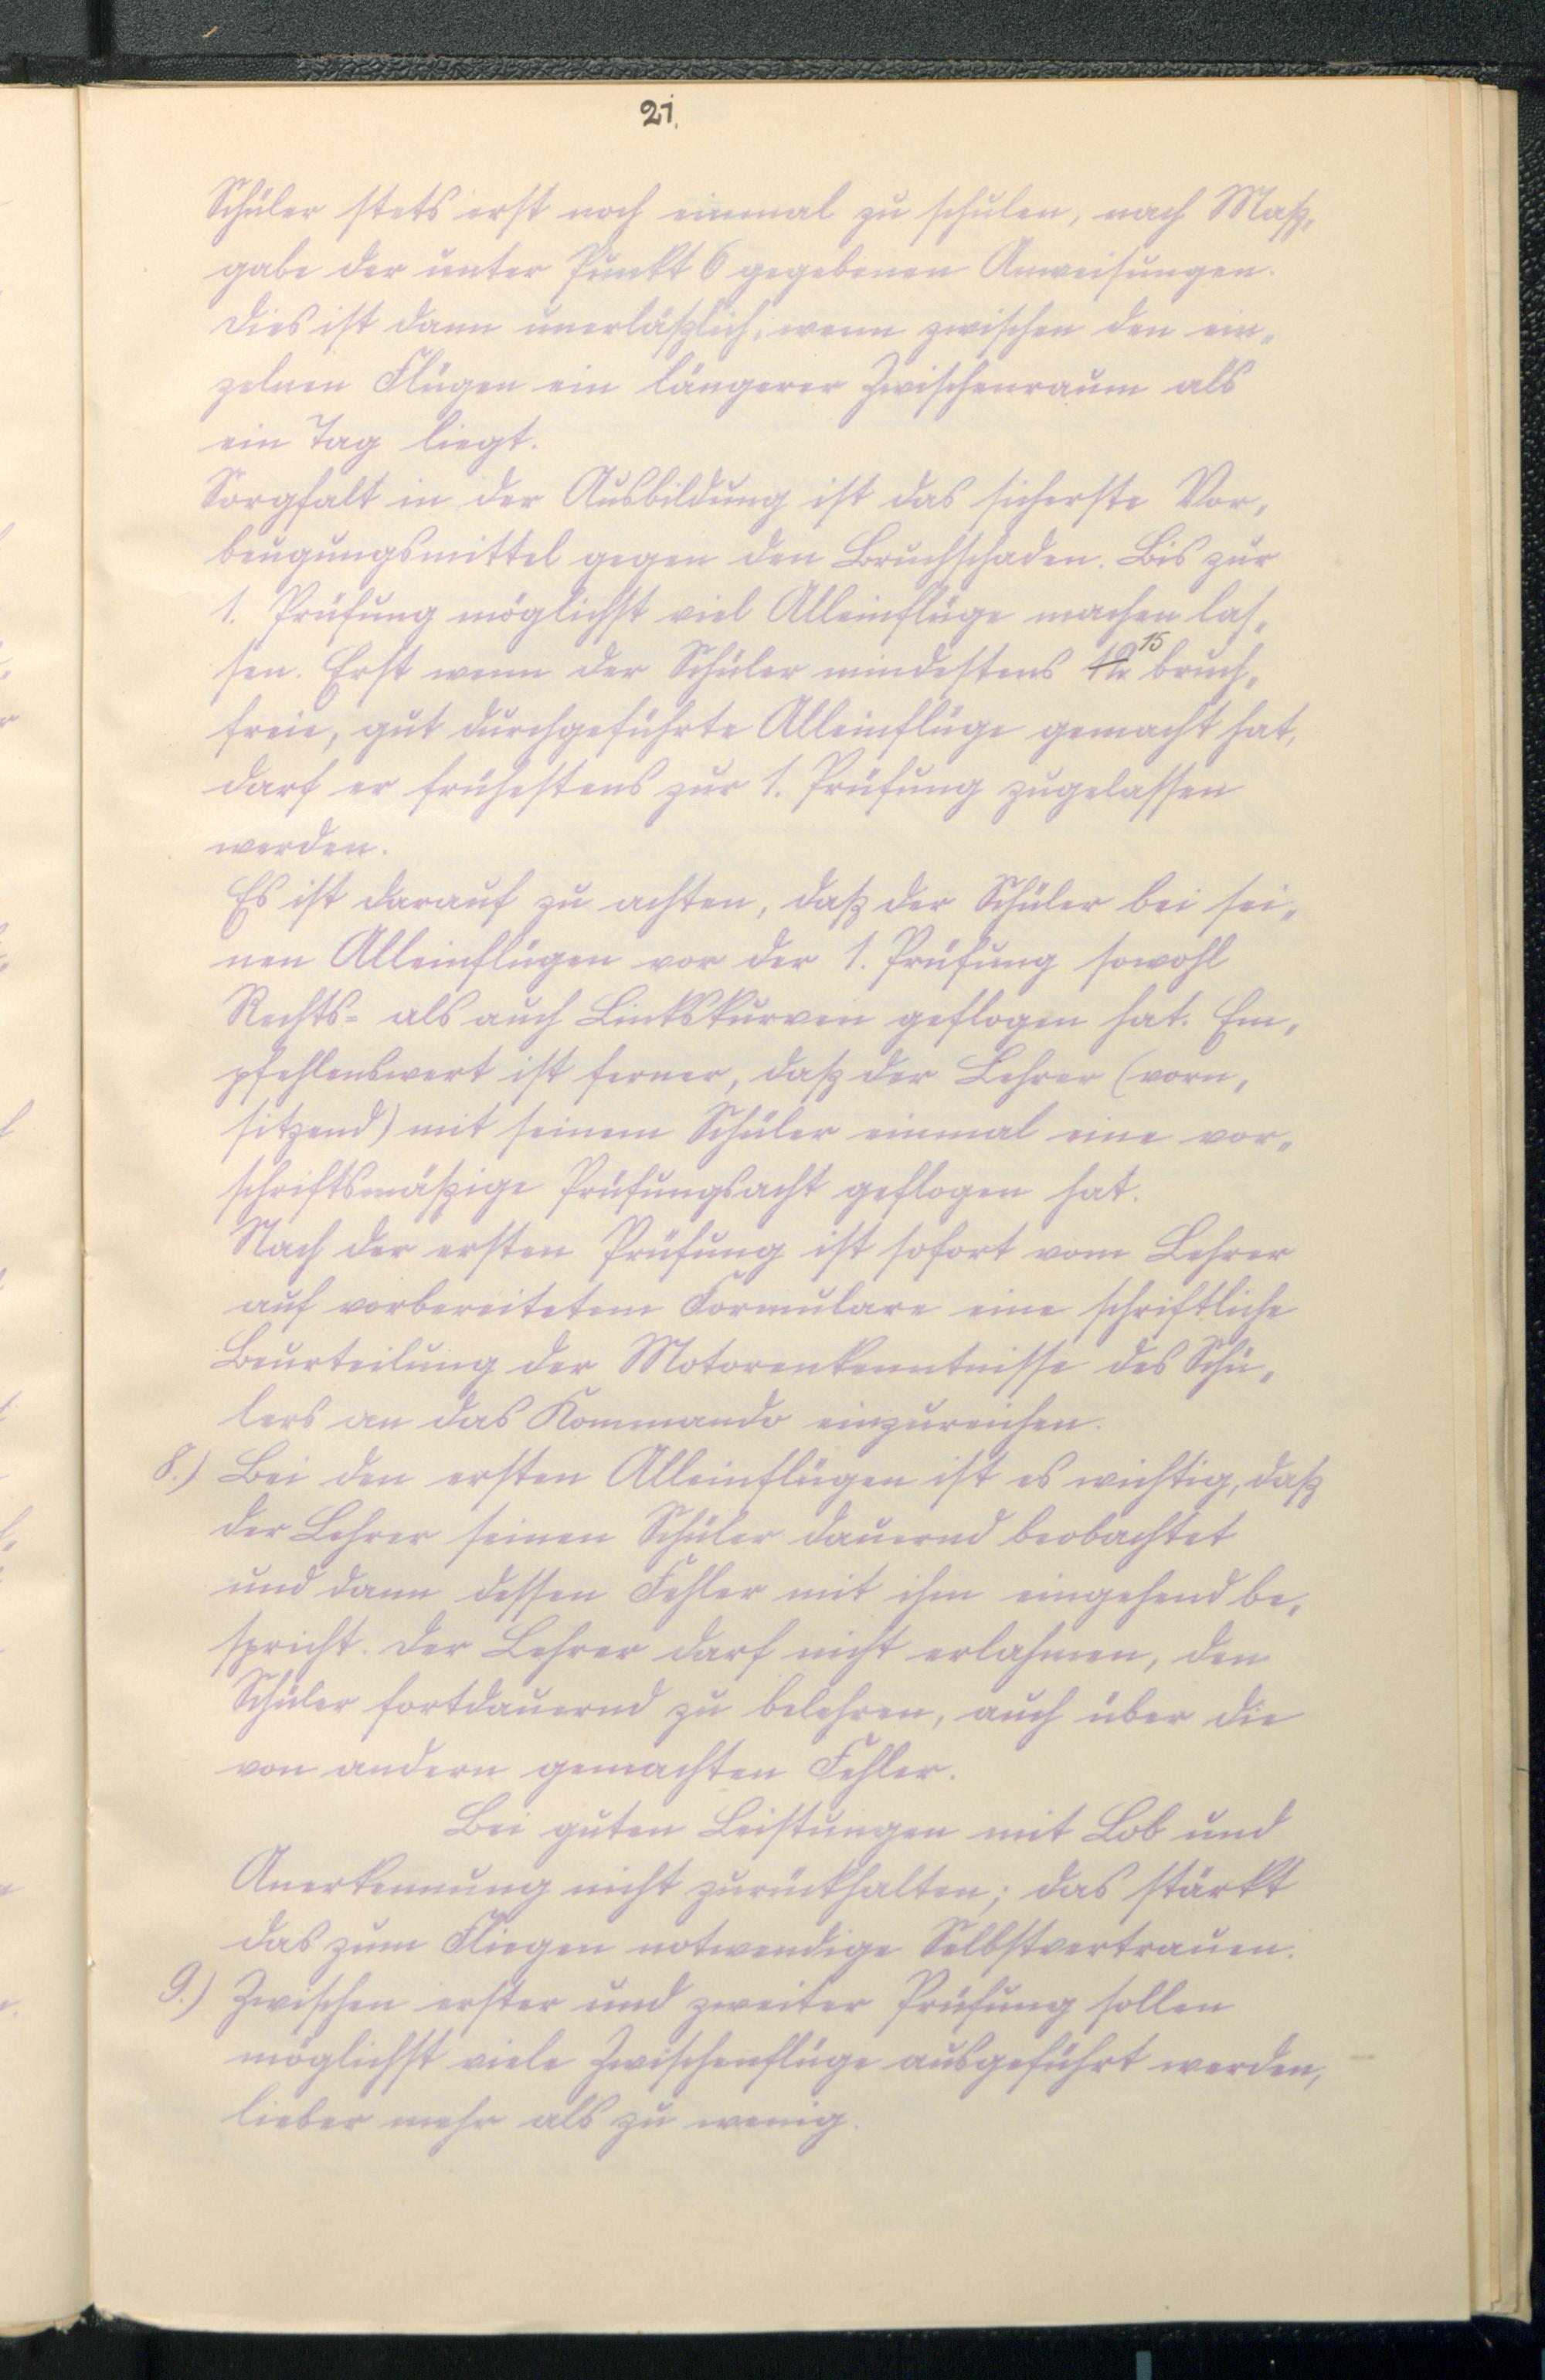 21.
Schüler stets erst noch einmal zu schulen, nach Maß„
gabe der unter Punkt 6 gegebenen Anweisungen.
Dies ist dann unerläßlich, wenn zwischen den ein„
zelnen Flügen ein längerer Zwischenraum als
ein Tag liegt.
Sorgfalt in der Ausbildung ist das sicherste Vor„
beugungsmittel gegen den Bruchschaden. Bis zur
1. Prüfung möglichst viel Alleinflüge machen las„
sen. Erst wenn der Schüler mindestens 15 bruch„
freie, gut durchgeführte Alleinflüge gemacht hat,
darf er frühestens zur 1. Prüfung zugelassen
werden.
Es ist darauf zu achten, daß der Schüler bei sei„
nen Alleinflügen vor der 1. Prüfung sowohl
Rechts- als auch Linkskurven geflogen hat. Em„
pfehlenswert ist ferner, daß der Lehrer (vorn„
sitzend) mit seinem Schüler einmal eine vor„
schriftsmäßige Prüfungsacht geflogen hat.
Nach der ersten Prüfung ist sofort vom Lehrer
auf vorbereitetem Formulare eine schriftliche
Beurteilung der Motorenkenntnisse des Schü„
lers an das Kommando einzureichen.
8.) Bei den ersten Alleinflügen ist es wichtig, daß
der Lehrer seinen Schüler dauernd beobachtet
und dann dessen Fehler mit ihm eingehend be„
spricht. Der Lehrer darf nicht erlahmen, den
Schüler fortdauernd zu belehren, auch über die
von andern gemachten Fehler.
Bei guten Leistungen mit Lob und
Anerkennung nicht zurückhalten; das stärkt
das zum Fliegen notwendige Selbstvertrauen.
9.) Zwischen erster und zweiter Prüfung sollen
möglichst viele Zwischenflüge ausgeführt werden,
lieber mehr als zu wenig.